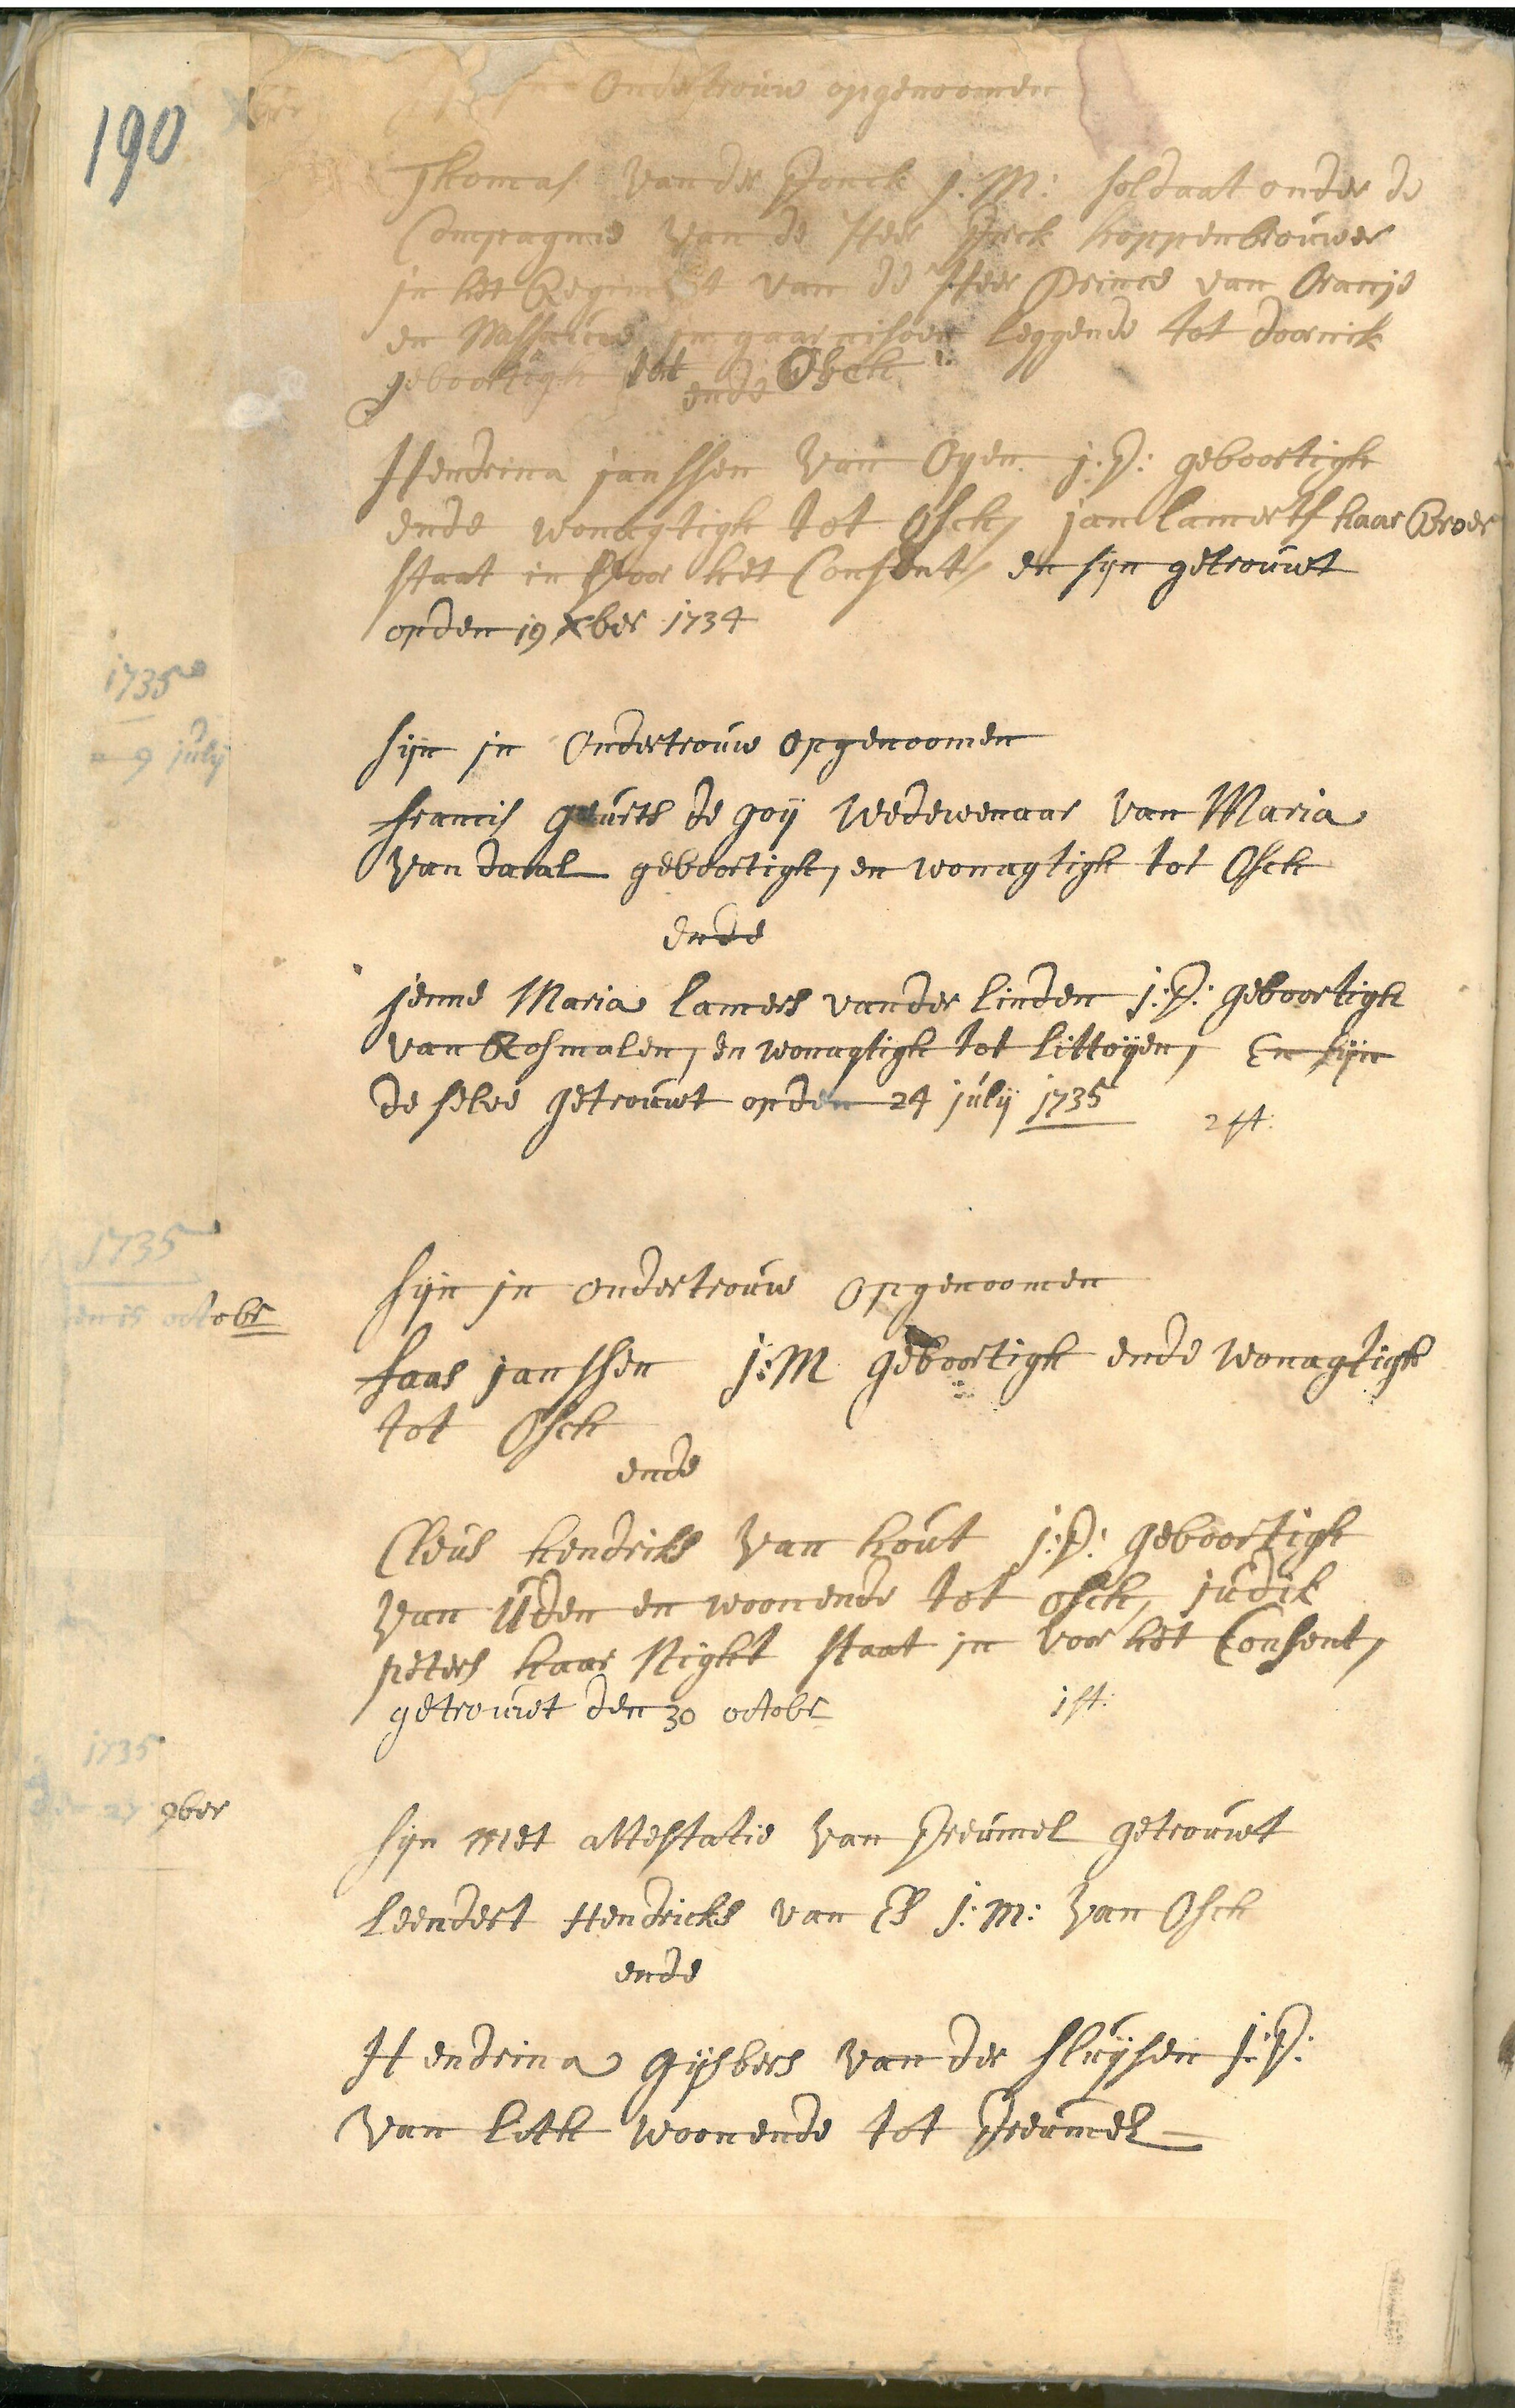 190
Xber
Ondertrouw opgenoomen
Thomas van der Donck j:M: soldaat onder de
Compagnie van de Heer Dirck hoppenbrouwer
in het Regiment van de Heer Prince van Oranje
en Nassauwe in gaarnisoen leggende tot doornik
geboortigh tot Osch
ende
Hendrina janssen van Oyen j:D: geboortigh
ende wonagtigh tot Osch, jan lamerts haar Broer
staat in voor het Consent, en syn getrouwt
op den 19 Xber 1734
1735
9 julij
sijn in Ondertrouw opgenoomen
francis geurts de goij wedewenaar van Maria
van daal geboortigh, en wonagtigh tot Osch
ende
jenne Maria lamers vander linden j:D: geboortigh
van Rosmalen, en wonagtigh tot littoijen, En sijn
de selve getrouwt op den 24 julij 1735
2 st:
1735
den 15 octobr
sijn in ondertrouw opgenoomen
faas janssen j:M geboortigh ende wonagtigh
tot Osch
ende
Cleus hendriks van hout j:D: geboortigh
van Uden en woonende tot osch, judik
peters haar Night staat in voor het Consent,
getrouwt den 30 octobr
1 st:
1735
den 27 9ber
sijn met attestatie van Dreumel getrouwt
leendert Hendricks van Es j:M: van Osch
ende
Hendrina gijsbers van der sluijsen j:D:
van lith woonende tot Dreumel